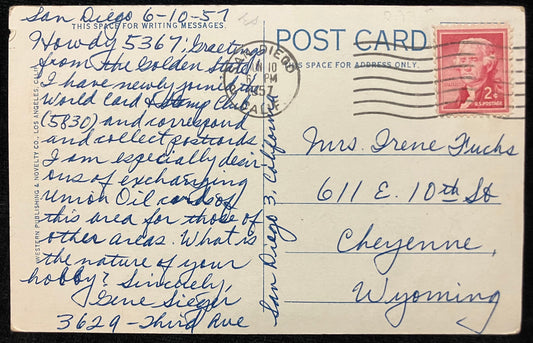 San Diego 6-10-57
THIS SPACE FOR WRITING MESSAGES.
Howdy 5367; Greetings
from the Golden State!
I have newly joined the
World Card & Stamp Club
(5830) and correspond
and collect postcards.
I am especially desir-
ous of exchanging
Union Oil cards of
this area for those of
other areas. What is
the nature of your
hobby? Sincerely,
Gene Sieger
3629 - Third Ave
San Diego 3, California
WESTERN PUBLISHING & NOVELTY CO., LOS ANGELES, CALIF.
POST CARD
THIS SPACE FOR ADDRESS ONLY.
SAN DIEGO
JUN 10
PM
1957
CALIF.
2¢
U.S. POSTAGE
Mrs. Irene Fuchs
611 E. 10th St
Cheyenne,
Wyoming